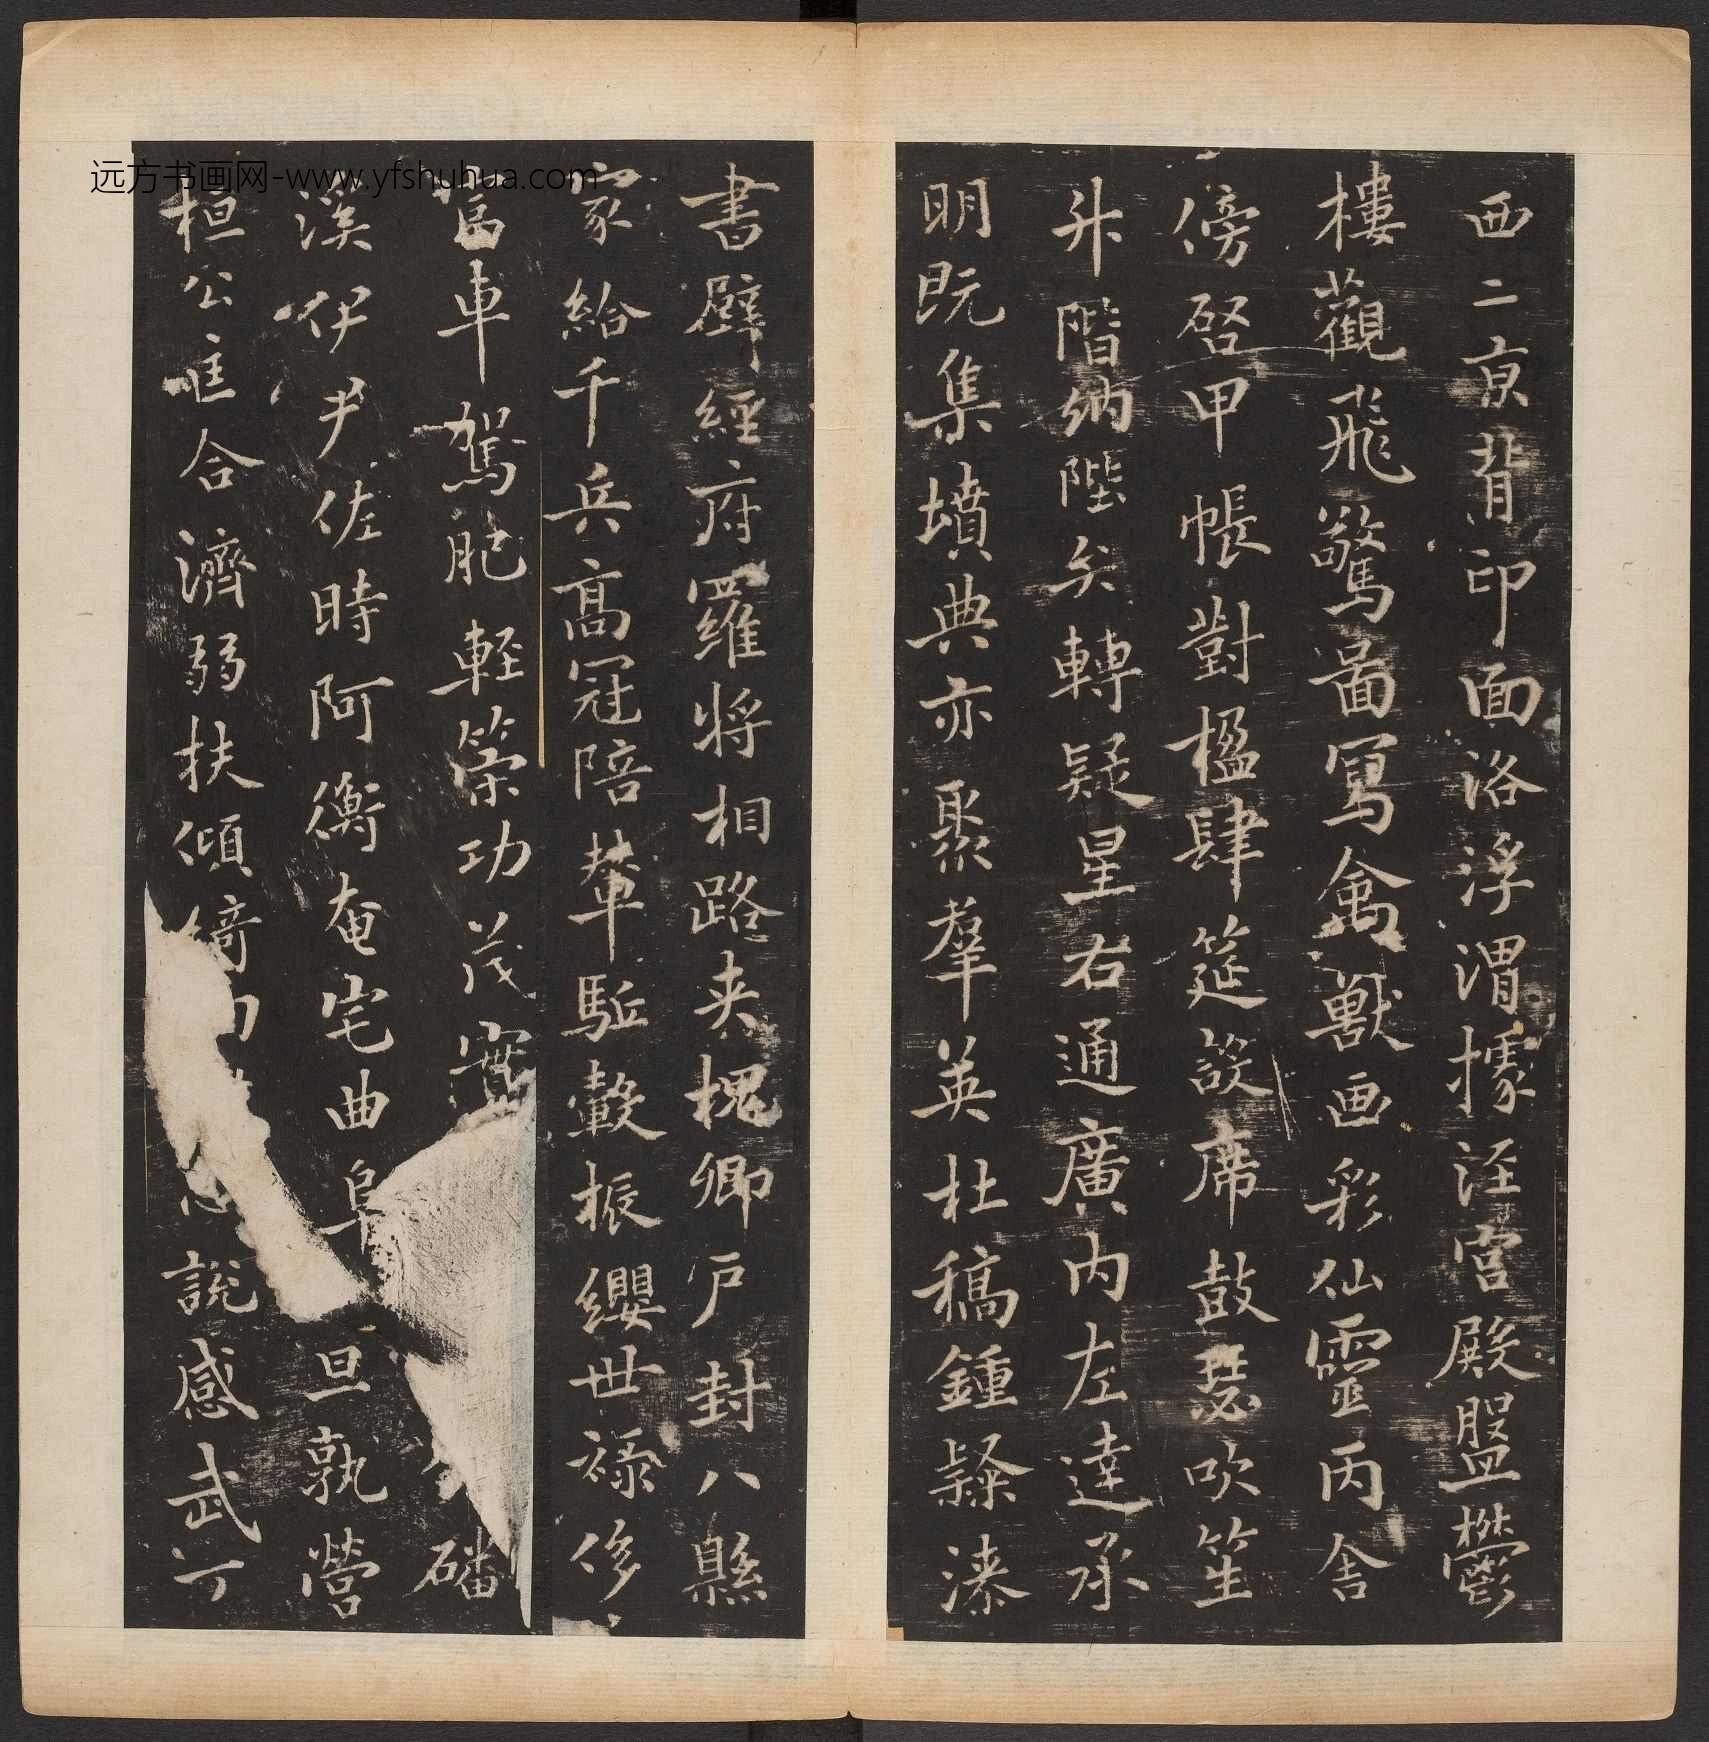 西二京背邙面洛浮渭據涇宮殿盤鬱
樓觀飛驚圖寫禽獸画彩仙靈丙舍
傍啓甲帳對楹肆筵設席鼓瑟吹笙
升階納陛弁轉疑星右通廣內左達承
明既集墳典亦聚羣英杜稿鍾隸漆
書壁經府羅將相路夾槐卿戶封八縣
家給千兵高冠陪輦驅轂振纓世祿侈
富車駕肥輕策功茂實磻
溪伊尹佐時阿衡奄宅曲阜旦孰營
桓公匡合濟弱扶傾綺說感武丁
远方书画网-www.yfshuhua.com